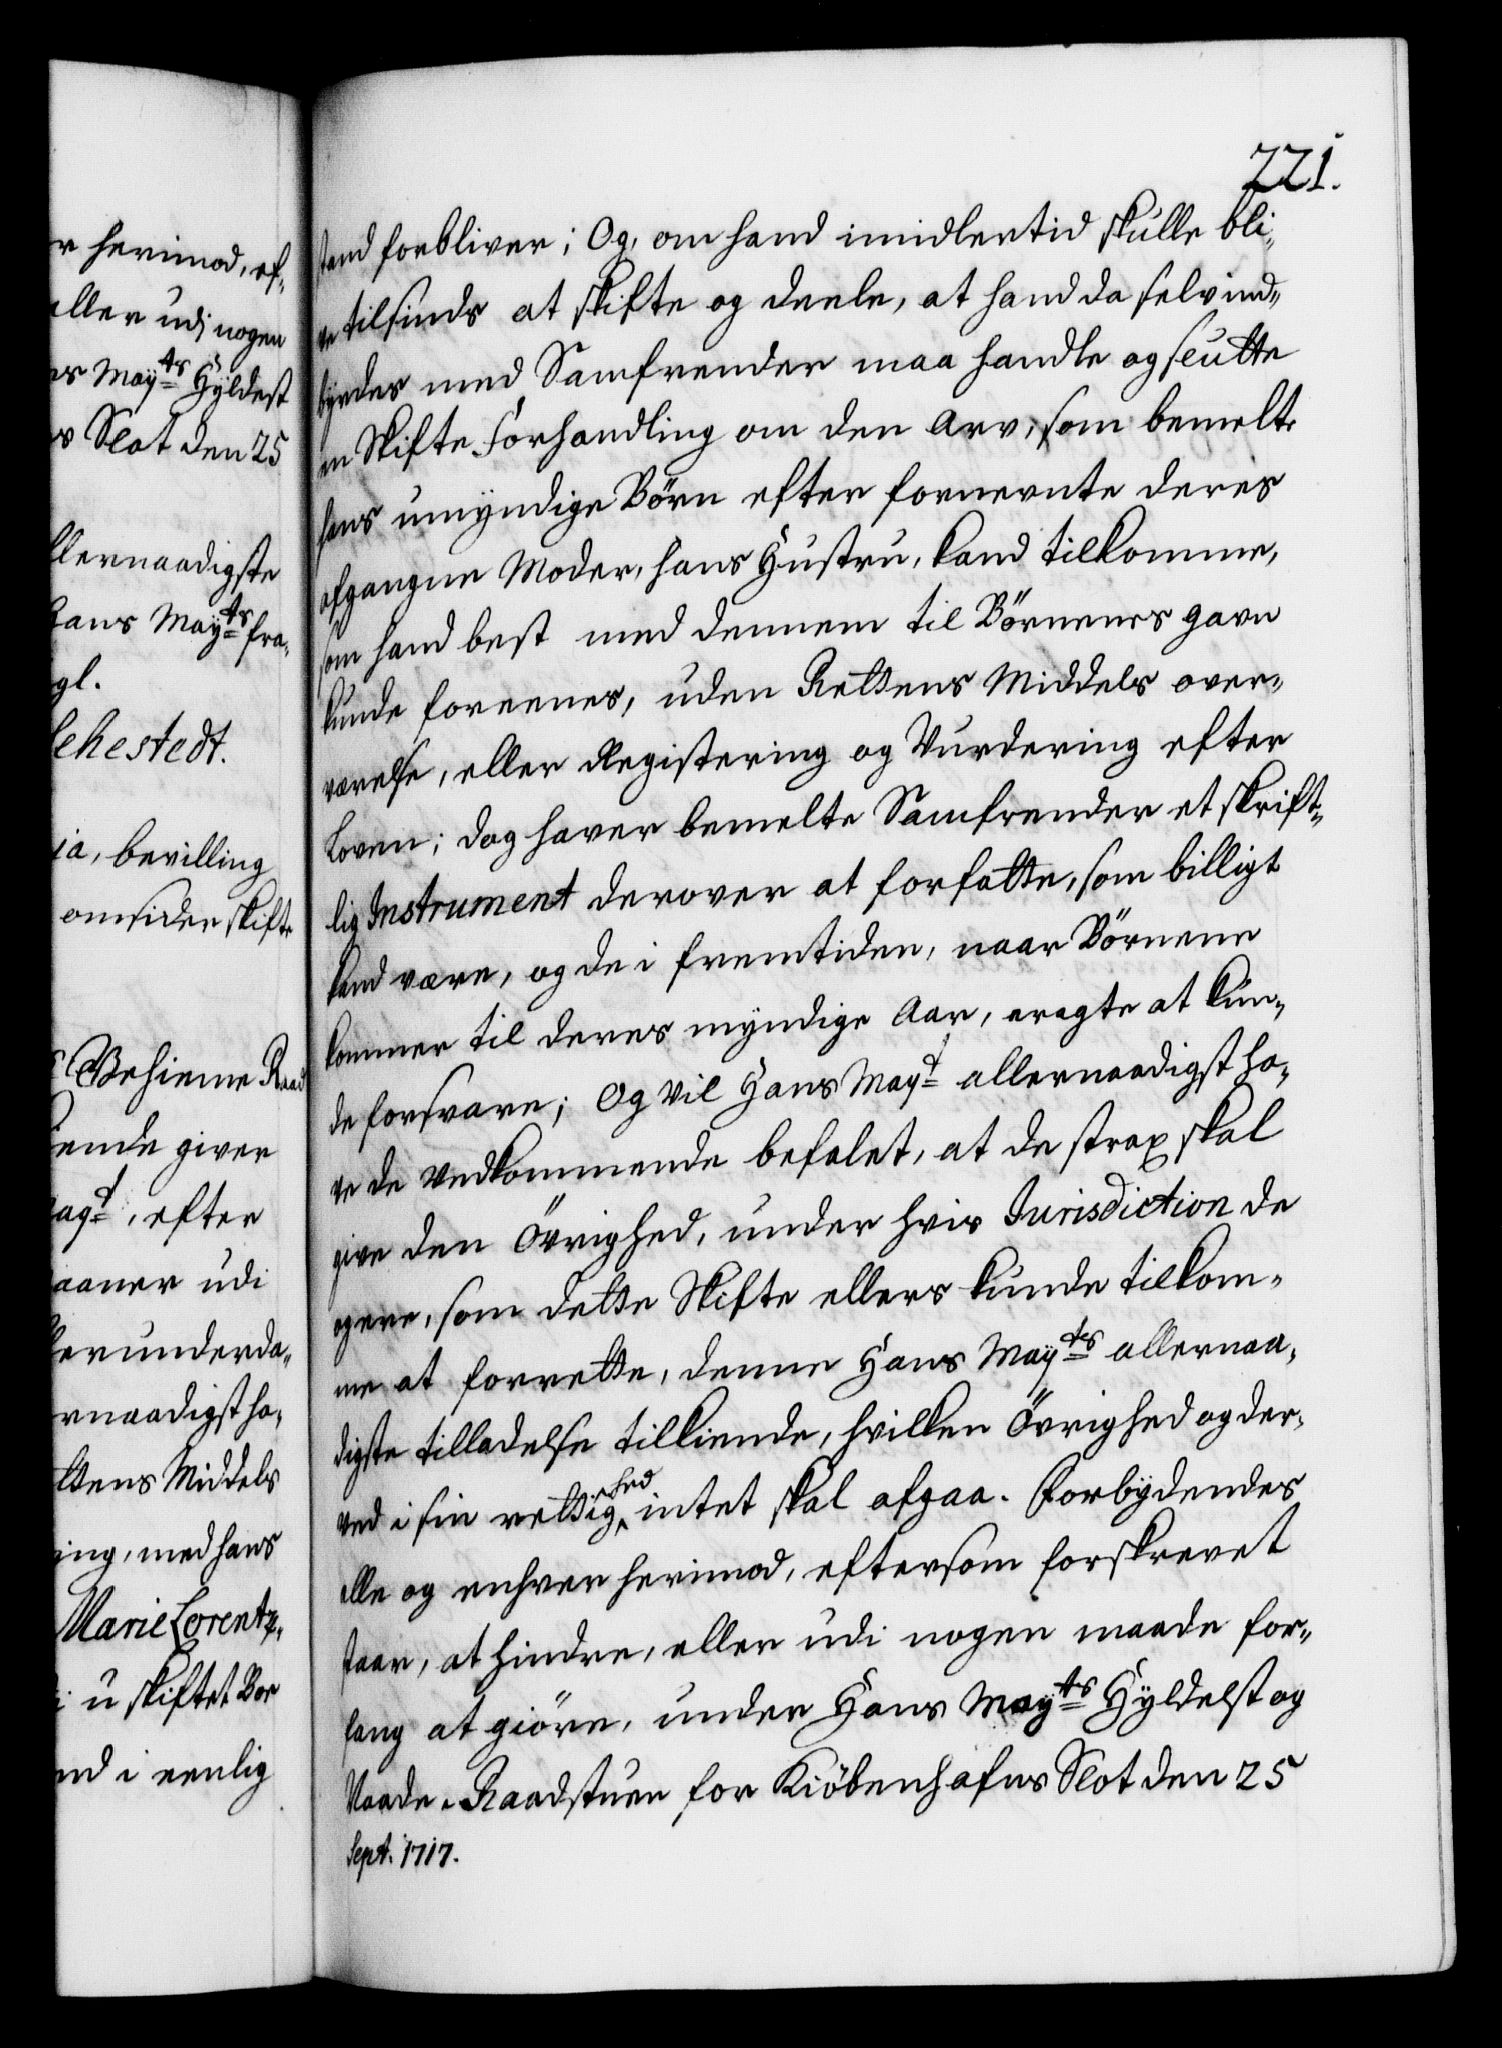 221.
r herimod, ef-
eller udj nogen
es May.ts Hyldest
s Slot den 25
llernaadigste
Hans May.ts fra-
gl.
Sehestedt.
ja, bevilling
omsider skifte
Geheime Raad
kende giver
May.t, efter
aaner udi
llerunderda-
rnaadigst ha-
ttens Middels
ing, med hans
Marie Lorentz-
i uskiftet Boe
nd i eenlig
stand forbliver; Og, om hand imidlertid skulle bli-
ve tilsinds at skifte og deele, at hand da selv ind-
byrdes med Samfrender maa handle og slutte
en Skifte Forhandling om den Arv, som bemelte
hans umyndige Börn efter fornevnte deres
afgangne Moder, hans Hustru, kand tilkomme,
som hand best med dennem til Börnenes gavn
kunde foreenes, uden Rettens Middels over-
værelse, eller Registering og Vurdering efter
Loven; dog haver bemelte Samfrender et skrift-
lig Instrument derover at forfatte, som billigt
kand være, og de i fremtiden, naar Börnene
kommer til deres myndige Aar, eragte at kun-
de forsvare; Og vil Hans May.t allernaadigst ha-
ve de vedkommende befalet, at de strax skal
give den Övrighed, under hvis Jurisdiction de
ere, som dette Skifte ellers kunde tilkom-
me at forrette, denne Hans May.ts allernaa-
digste tilladelse tilkiende, hvilken Övrighed og der-
ved i sin rettighed intet skal afgaa. Forbydendes
alle og enhver herimod, eftersom forskrevet
staar, at hindre, eller udi nogen maade for-
fang at giöre, under Hans May.ts Hyldelst og
Naade. Raadstuen for Kiöbenhafns Slot den 25
Sept. 1717.